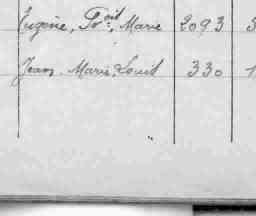 Eugène, Fr.ois, Marie 2093 3
Jean Marie Louis 330 1